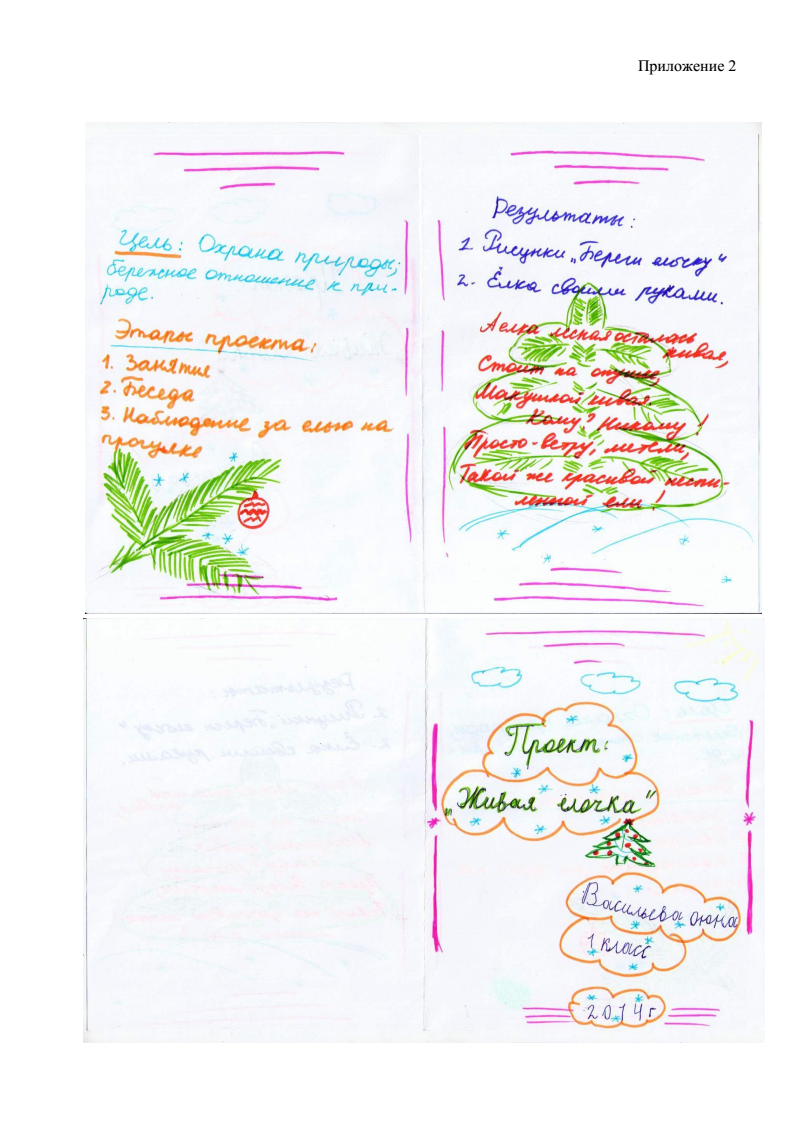 Приложение 2
Цель: Охрана природы;
бережное отношение к при-
роде.
Этапы проекта:
1. Занятия
2. Беседа
3. Наблюдение за елью на
прогулке
Результаты:
1. Рисунки „Береги ёлочку"
2. Ёлка своими руками.
А елка лесная осталась
живая,
Стоит на опушке,
Макушкой кивая.
Кому? Никому!
Просто - ветру, метели,
Такой же красивой неспи-
ленной ели!
Проект:
„Живая ёлочка"
Васильева
1 класс
2014г